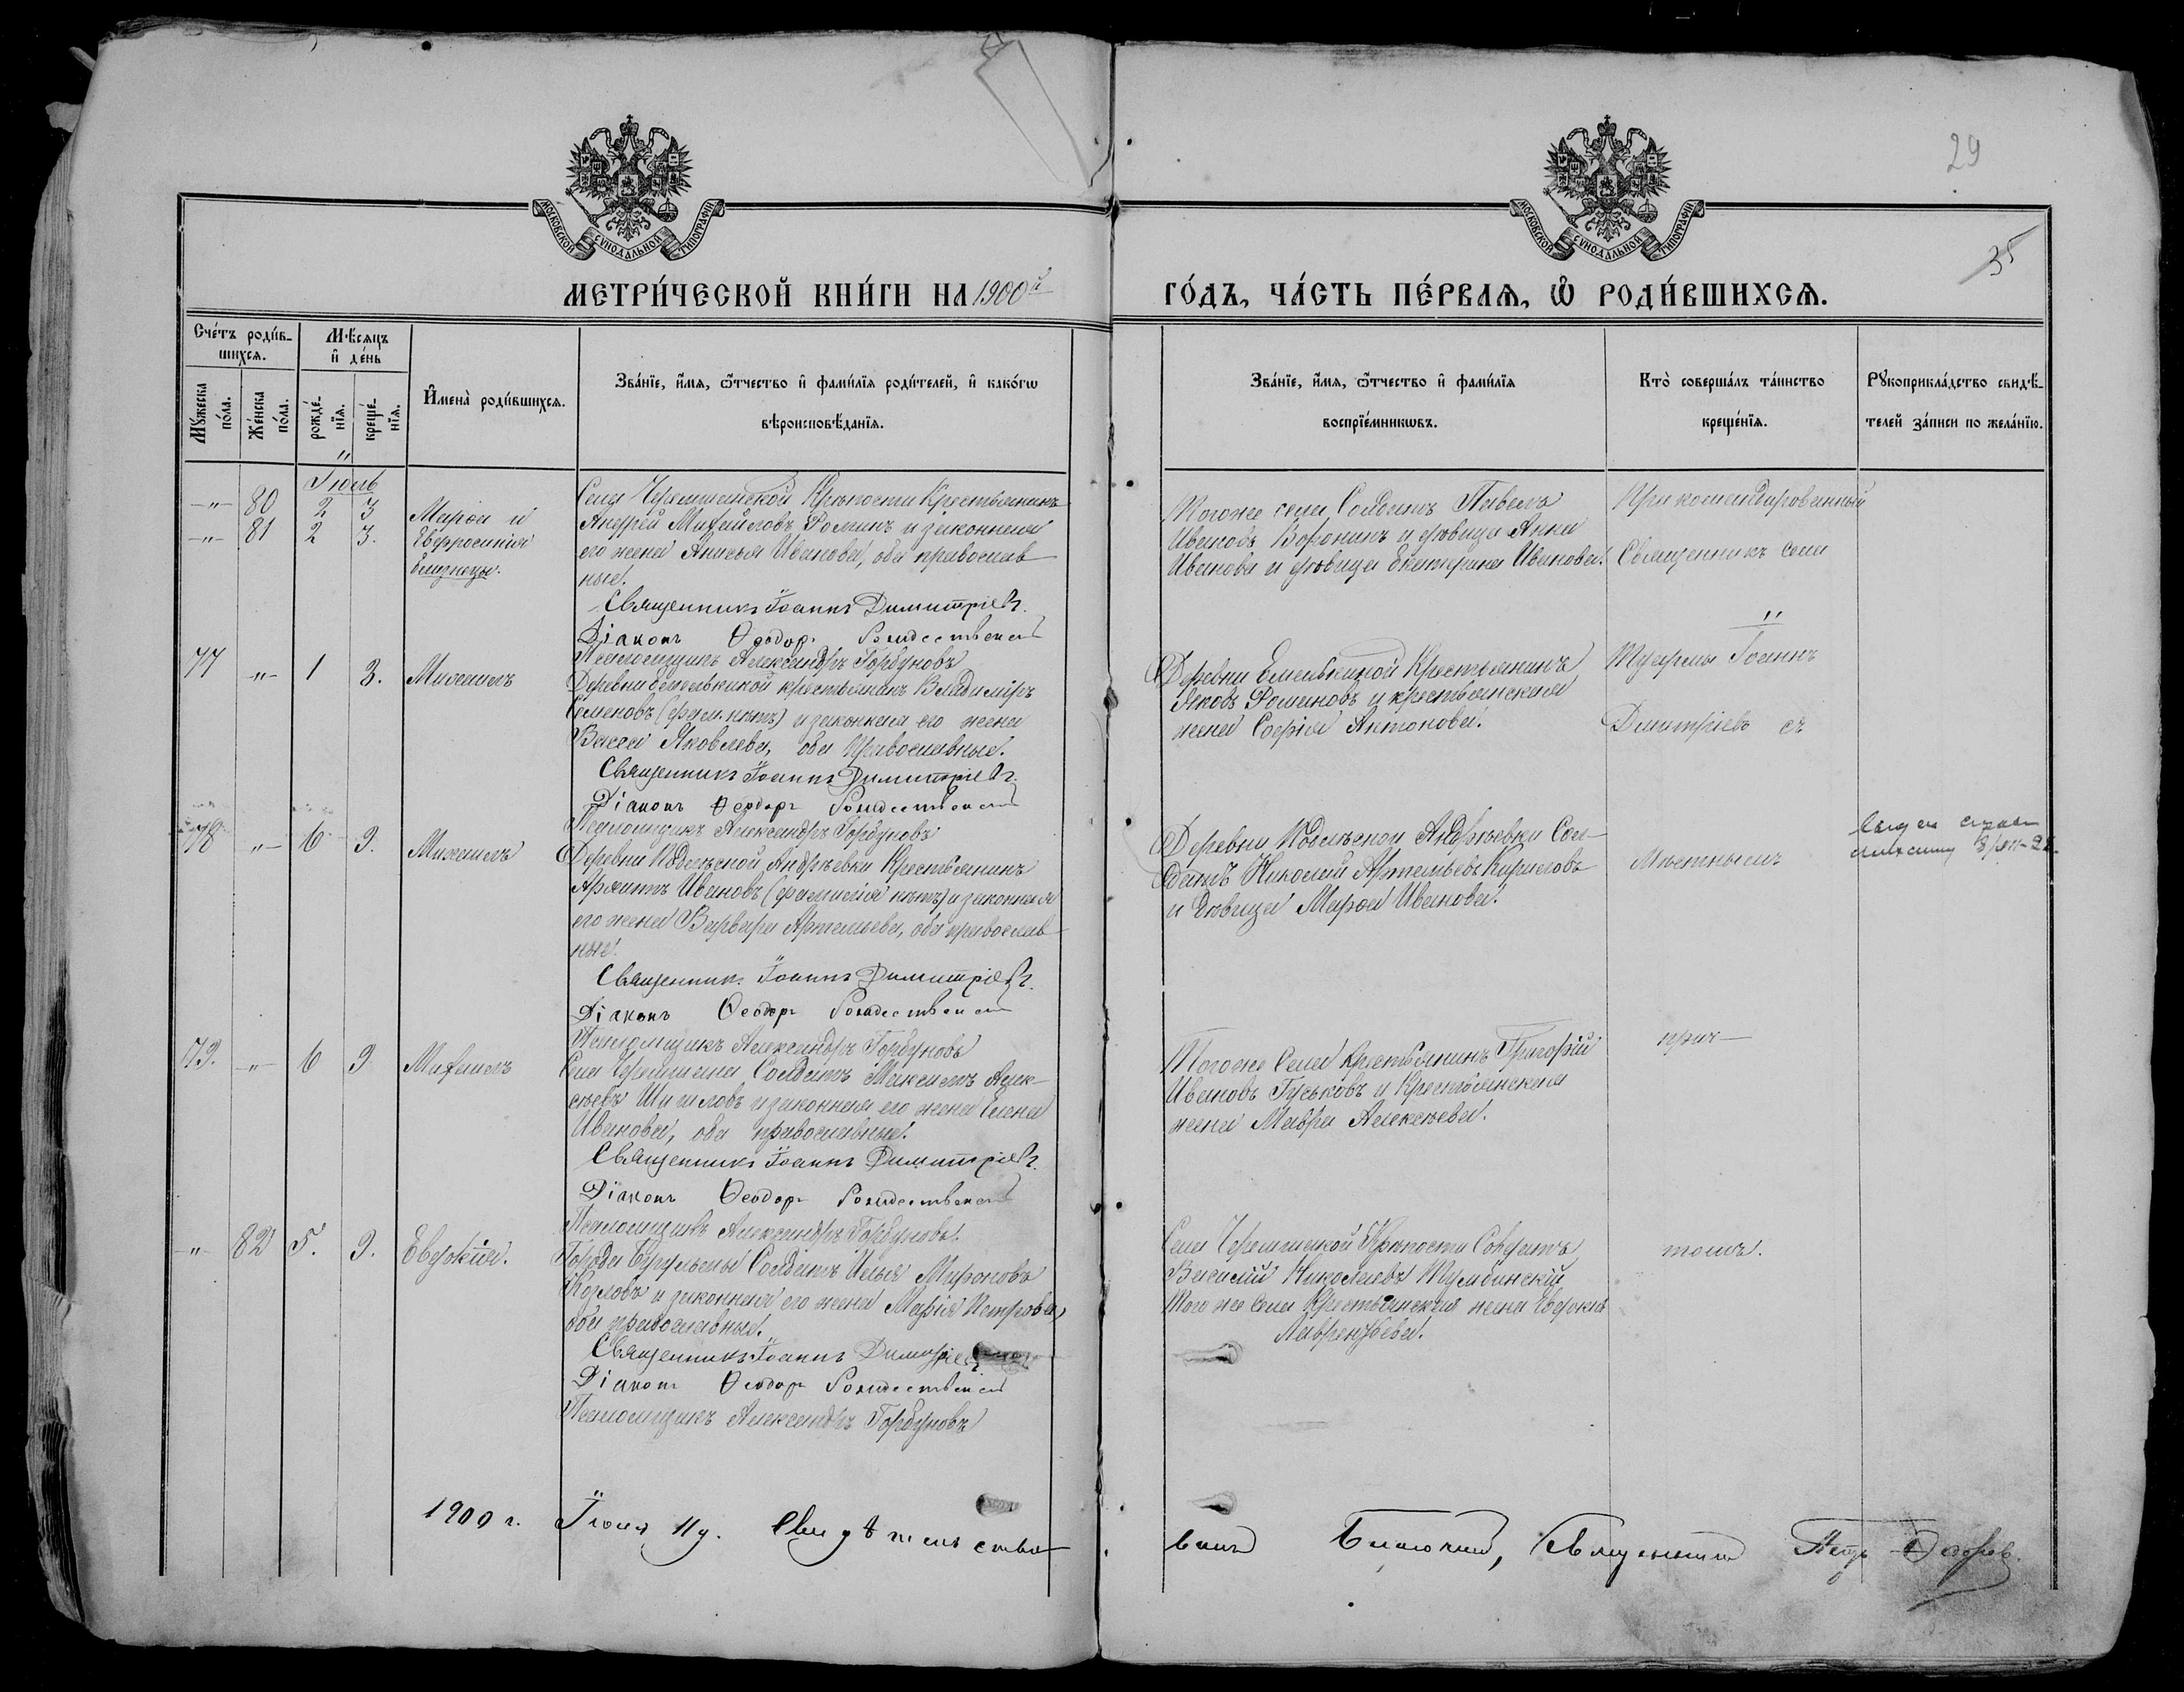 29
35
МОСКОВСКОЙ СѴНОДАЛЬНОЙ ТИПОГРАФІИ
МОСКОВСКОЙ СѴНОДАЛЬНОЙ ТИПОГРАФІИ
МЕТРИ́ЧЕСКОЙ КНИ́ГИ НА 1900й
ГО́ДЪ, ЧА́СТЬ ПЕ́РВАѦ, Ѡ҆ РОДИ́ВШИХСѦ.
Сче́тъ роди́в-
шихсѧ.
Мꙋ́жеска по́ла.
Же́нска по́ла.
Мѣ́сѧцъ
и҆ де́нь
рожде́-
нїѧ.
креще́-
нїѧ.
И҆мена̀ роди́вшихсѧ.
Зва́нїе, и҆́мѧ, ѻ҆́тчество и҆ фами́лїѧ роди́телей, и҆ како́гѡ
вѣроисповѣ́данїѧ.
Зва́нїе, и҆́мѧ, ѻ҆́тчество и҆ фами́лїѧ
воспрїе́мникѡвъ.
Кто̀ соверша́лъ та́инство
креще́нїѧ.
Рꙋкоприкла́дство свидѣ́-
телей за́писи по жела́нїю.
Іюль
-"- 80 2 3 Марѳа и
-"- 81 2 3. Евфросинія
близнецы.
Села Черемшанской Крѣпости Крестьянинъ
Андрей Михайловъ Фоминъ и законная
его жена Анисья Иванова, оба православ
ные.
Священникъ Іоаннъ Димитріевъ.
Діаконъ Ѳеодоръ Рождественскій
Псаломщикъ Александръ Горбуновъ
Тогоже села Солдатъ Павелъ
Ивановъ Воронинъ и дѣвица Анна
Иванова и дѣвица Екатерина Иванова.
Прикомандированный
Священникъ села
77 -"- 1 3. Михаилъ
Деревни Емелькиной крестьянинъ Владиміръ
Семеновъ (фам. нѣтъ) и законная его жена
Васса Яковлева, оба православные.
Священникъ Іоаннъ Димитріевъ.
Діаконъ Ѳеодоръ Рождественскій
Псаломщикъ Александръ Горбуновъ
Деревни Емелькиной Крестьянинъ
Яковъ Романовъ и крестьянская
жена Софія Антонова.
Іоаннъ
Димитріевъ съ
78 -"- 6 9. Михаилъ
Деревни Подлѣсной Андрѣевки Крестьянинъ
Ивановъ (фамиліи нѣтъ) и законная
его жена Варвара Артемьева, оба православ
ные.
Священникъ Іоаннъ Димитріевъ.
Діаконъ Ѳеодоръ Рождественскій
Псаломщикъ Александръ Горбуновъ
Деревни Подлѣсной Андрѣевки Сол-
датъ Николай Артемьевъ Кириловъ
и дѣвица Марѳа Иванова.
Мѣстнымъ
79. -"- 6 9 Михаилъ
Села Черемшана Солдатъ Максимъ Алек-
сѣевъ Шишловъ и законная его жена Елена
Иванова, оба православные.
Священникъ Іоаннъ Димитріевъ.
Діаконъ Ѳеодоръ Рождественскій
Псаломщикъ Александръ Горбуновъ.
Тогоже села Крестьянинъ Григорій
Ивановъ Гуськовъ и Крестьянская
жена Мавра Алексѣева.
прич-
-"- 82 5. 9. Евдокія.
Города Бугульмы Солдатъ Илья Мироновъ
Козловъ и законная его жена Марія Петрова,
оба православные.
Священникъ Іоаннъ Димитріевъ
Діаконъ Ѳеодоръ Рождественскій
Псаломщикъ Александръ Горбуновъ
Села Черемшанской Крѣпости Солдатъ
Василій Николаевъ Тумбинскій
Того же села Крестьянская жена Евдокія
Лаврентьева.
томъ.
1900 г. Іюля 11 д. Свидѣтельство-
валъ Благочинный, Священникъ Петръ